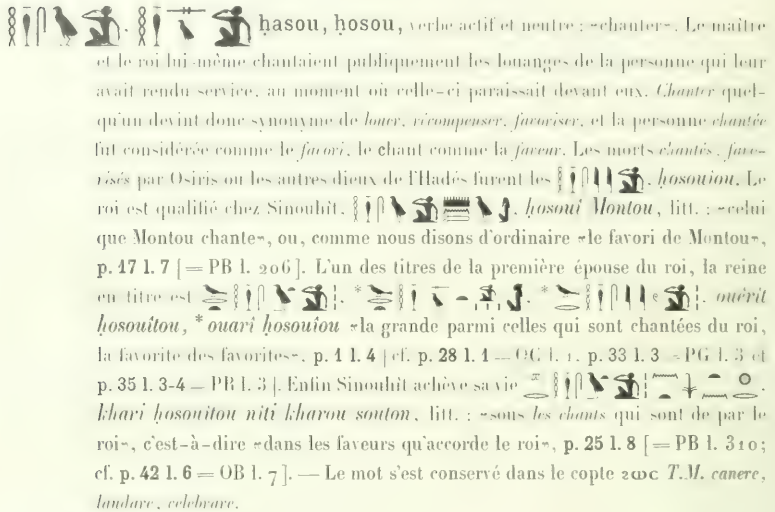 ḥasou, ḥosou, verbe actif et neutre : «chanter». Le maître
et le roi lui-même chantaient publiquement les louanges de la personne qui leur
avait rendu service, au moment où celle-ci paraissait devant eux. Chanter quel-
qu'un devint donc synonyme de louer, récompenser, favoriser, et la personne chantée
fut considérée comme le favori, le chant comme la faveur. Les morts chantés, favo-
risés par Osiris ou les autres dieux de l'Hadès furent les 𓎛𓋴𓇋𓇋𓀁, hosouiou. Le
roi est qualifié chez Sinouhît, ḥosoui Montou, litt. : «celui
que Montou chante», ou, comme nous disons d'ordinaire «le favori de Montou»,
p. 17 l. 7 [= PB l. 206]. L'un des titres de la première épouse du roi, la reine
en titre est ouérît
ḥosouîtou, *ouarî ḥosouîou «la grande parmi celles qui sont chantées du roi,
la favorite des favorites», p. 1 l. 4 [cf. p. 28 l. 1 = OC l. 1, p. 33 l. 3 = PG l. 3 et
p. 35 l. 3-4 = PR l. 3]. Enfin Sinouhît achève sa vie
khari ḥosouitou niti kharou souton, litt. : «sous les chants qui sont de par le
roi», c'est-à-dire «dans les faveurs qu'accorde le roi», p. 25 l. 8 [= PB l. 310;
cf. p. 42 l. 6 = OB l. 7]. — Le mot s'est conservé dans le copte ϩⲱⲥ T.M. canere,
laudare, celebrare.